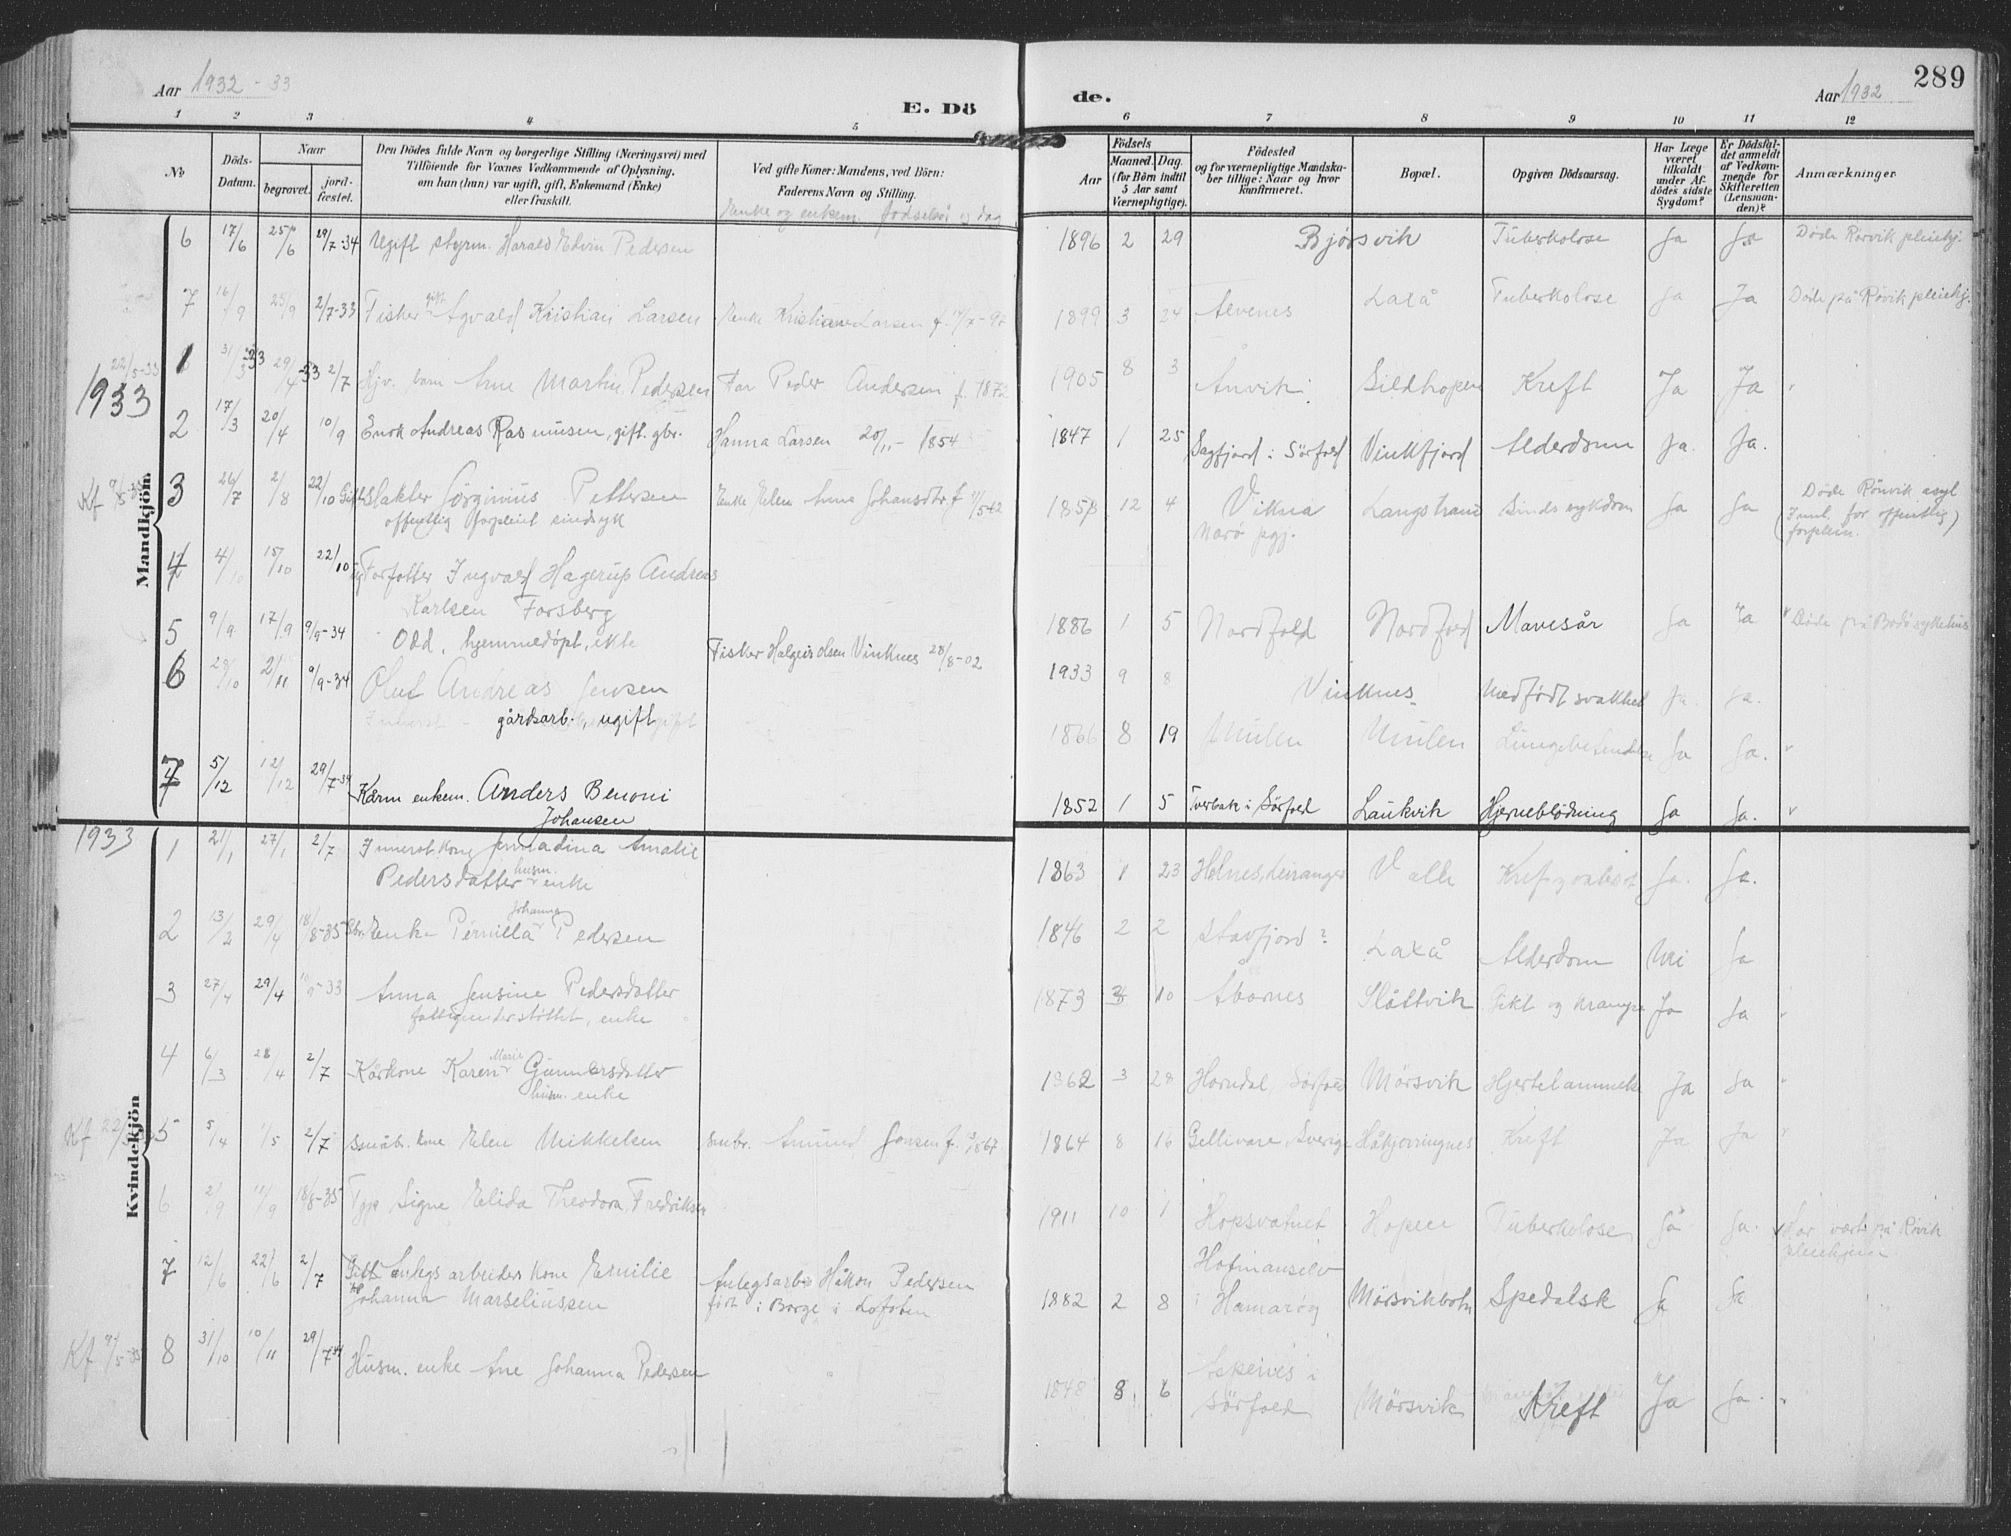 Aar 1932-33
E. Dö
de.
Aar 1932
289
1 2 3 4 5 6 7 8 9 10 11 12
No
Döds-
Datum.
Naar
begravet.
jord-
fæstet.
Den Dödes fulde Navn og borgerlige Stilling (Næringsvei) med
Tilföiende for Voxnes Vedkommende af Oplysning,
om han (hun) var ugift, gift, Enkemand (Enke)
eller fraskilt.
Ved gifte Koner: Mandens, ved Börn:
Faderens Navn og Stilling.
Enke og enkem. fødselsår og dag
Födsels
Aar
Maaned. Dag.
(for Börn indtil
5 Aar samt
Værnepligtige).
Födested
og for værnepligtige Mandska-
ber tillige: Naar og hvor
konfirmeret.
Bopæl.
Opgiven Dödsaarsag.
Har Læge
været
tilkaldt
under Af-
dödes sidste
Sygdom?
Er Dödsfal-
det anmeldt
af Vedkom-
mende for
Skifteretten
(Lensman-
den)?
Anmærkninger
Mandkjön
6 17/6 25/6 29/7-34 Ugift styrm. Harald Edvin Pedersen 1896 2 29 Bjørsvik Tuberkolose Ja Ja Døde Rørvik pleiehj.
7 16/9 25/9 2/7-33 Fisker gift Agvald Kristian Larsen Enke Kristiane Larsen f. 14/7-97 1899 3 24 Alvenes Laxå Tuberkolose Ja Ja Døde på Røvik pleiehj.
22/5-33
1933
1 31/3 33 29/4-33 2/7 Hjv. barn Arne Martin Pedersen Far Peder Andersen f. 1873 1905 8 3 Anvik Sildhopen Kreft Ja Ja "
2 17/3 20/4 10/9 Enok Andreas Rasmussen, gift. gbr. Hanna Larsen 20/11-1854 1847 1 25 Sagfjord i Sørfold Vinkfjord Alderdom Ja. Ja.
Kf 9/5-35
3 26/7 2/8 22/10 Gift Slakter Jørginius Pettersen Enke Elen Anna Johansdtr. f 1858 12 4 Vikna Langstrand Sindssykdom Ja Ja Døde Rønvik asyl
offentlig forpleiet sindsyk
Narø pgj.
(Innl. for offentlig
forplein.)
4 4/10 15/10 22/10 ug Forfatter Ingvald Hagerup Andreas
Karlsen Forsberg 1886 1 5 Nordfold Nordfold Mavesår Ja Ja Døde på Bodø sykehus
5 9/9 17/9 9/9-34 Odd, hjemmedøpt, ekte Fisker Halgeir Olsen Vinknes 28/8-02 1933 9 8 Vinknes Medfødt svakhet Ja. Ja.
6 28/10 2/11 9/9-34 Oluf Andreas Jensen
gårdsarb., ugift 1866 8 19 Mulen Mulen Lungebetendelse Ja Ja. "
7 5/12 12/12 29/7-34 Kårm enkem. Anders Benoni
Johansen 1852 1 5 Tverbak i Sørfold Laukvik Hjerneblödning Ja Ja. "
Kvindekjön
1933
1 21/1 27/1 2/7 Innerst. kone Jennadina Amalie
Pedersdatter husm. enke 1863 1 23 Helnes, Leiranger Valle Ja. Ja.
2 13/2 29/4 18/8-35 Gbr. Enke Pernilla Johanna Pedersen 1846 2 2 Stavfjord? Laxå Alderdom Nei Ja
3 27/4 29/4 10/9-33 Anna Jensine Pedersdatter
fattigunderstøttet, enke 1873 3 10 Åbornes Slåttvik Gikt og Ja Ja "
4 6/3 28/4 2/7 Kårkone Karen Marie Gunnarsdatter
husm. enke 1862 3 28 Horndal, Sørfold Mørsvik Hjertelammelse Ja Ja "
Kf 22/
5 5/4 1/5 2/7 Småb. kone Elen Mikkelsen Småbr. Amund Jensen f. 1867 1864 8 16 Gellivare, Sverige Håkjerringnes Kreft Ja Ja "
6 2/9 10/9 18/8-35 Tjp Signe Elida Theodora Fredriksen 1911 10 1 Hopsvatnet Hopen Tuberkolose Ja Ja. Har vært på Røvik
pleiehjem
7 12/6 22/6 2/7 Gift Anlegsarbeiders kone Emilie
Johanna Marseliussen Anlegsarb. Håkon Pedersen
født i Borge i Lofoten 1882 2 8 i Hamarøy Mørsvikbotn Spedalsk Ja Ja
Kf 9/5-35
8 31/10 10/11 29/7-34 Husm. enke Ane Johanna Pedersen 1848 8 6 Aspenes i
Sørfold Mørsvik Kreft Ja Ja. "